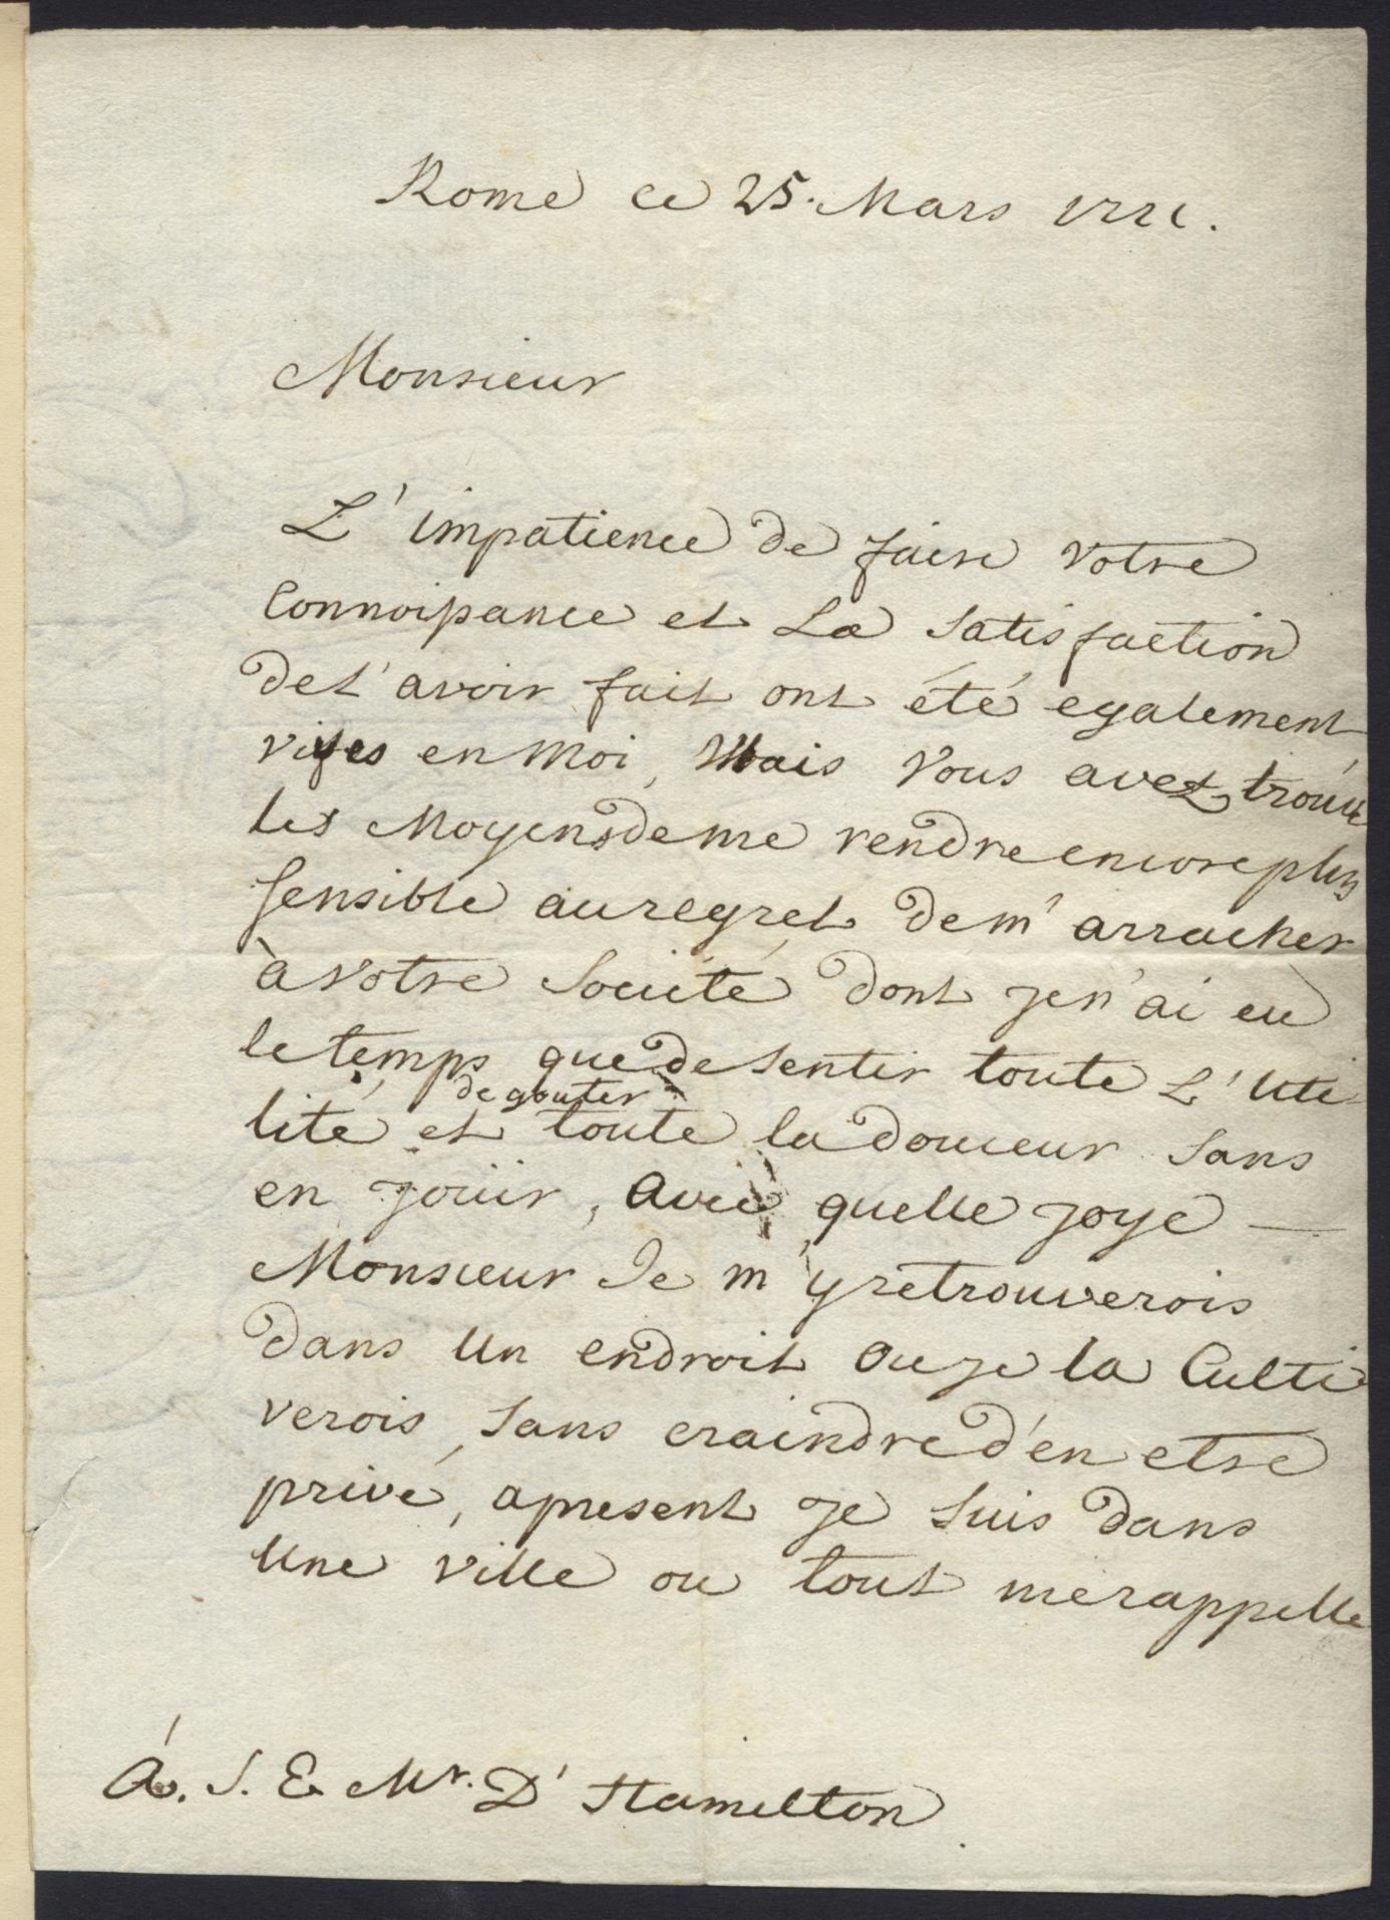 Rome ce 25. Mars 1771.
Monsieur
L'impatience de faire votre
Connoissance et La Satisfaction
de l'avoir fait ont été egalement
vives en Moi, Mais Vous avez trouvé
les Moyens de me rendre encore plus
Sensible au regret de m'arracher
à votre Société dont je n'ai eu
le temps que de Sentir toute L'Uti
de gouter
lité et toute la douceur Sans
en joüir, avec quelle joye —
Monsieur Je m'y retrouverois
dans Un endroit ou je la Culti
verois, Sans craindre d'en etre
privé, apresent je Suis dans
Une Ville ou tout me rappelle
À. S. E Mr. D'Hamelton